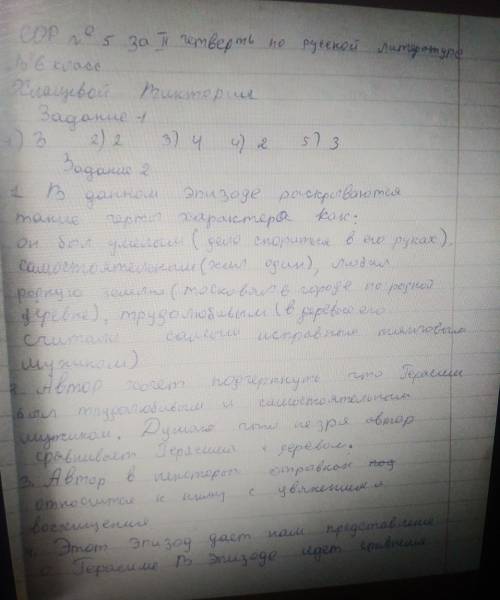 СОР № 5 за II четверть по русской литературе
В 6 класс
Хлащевой Виктории
Задание 1
1) 3 2) 2 3) 4 4) 2 5) 3
Задание 2
1. В данном эпизоде раскрываются
такие черты характера как:
он был умелым (дело спориться в его руках),
самостоятельным (жил один), любил
родную землю (тосковал в городе по родной
деревне), трудолюбивым (в деревне его
считали самым исправным тягловым
мужиком)
2. Автор хочет подчеркнуть что Герасим
был трудолюбивым и самостоятельным
мужиком. Думаю что не зря автор
сравнивает Герасима с деревом.
3. Автор в отрывком
относится к нему с уважением и
восхищения
4. Этот эпизод дает нам представление
о Герасиме В эпизоде идет сравнения